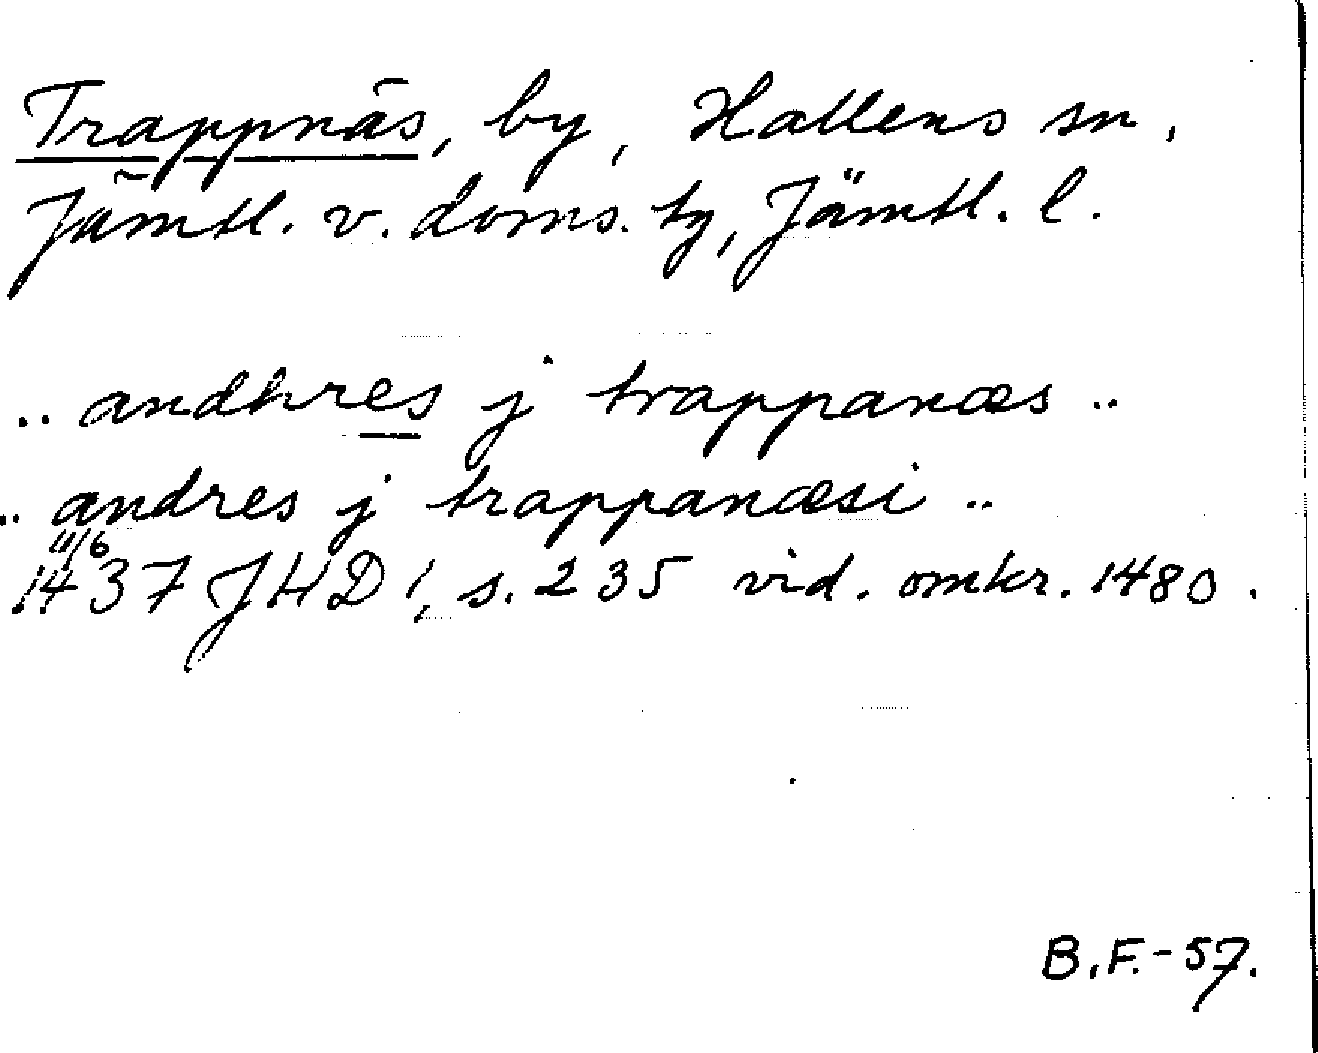 Trappnäs, by, Hallens sn,
Jämtl. v. doms. tg, Jämtl. l.
.. andhres j trappanæs ..
.. andres j trappanæsi ..
11/6
1437 JHD 1, s. 235 vid. omkr. 1480.
B.F.-57.